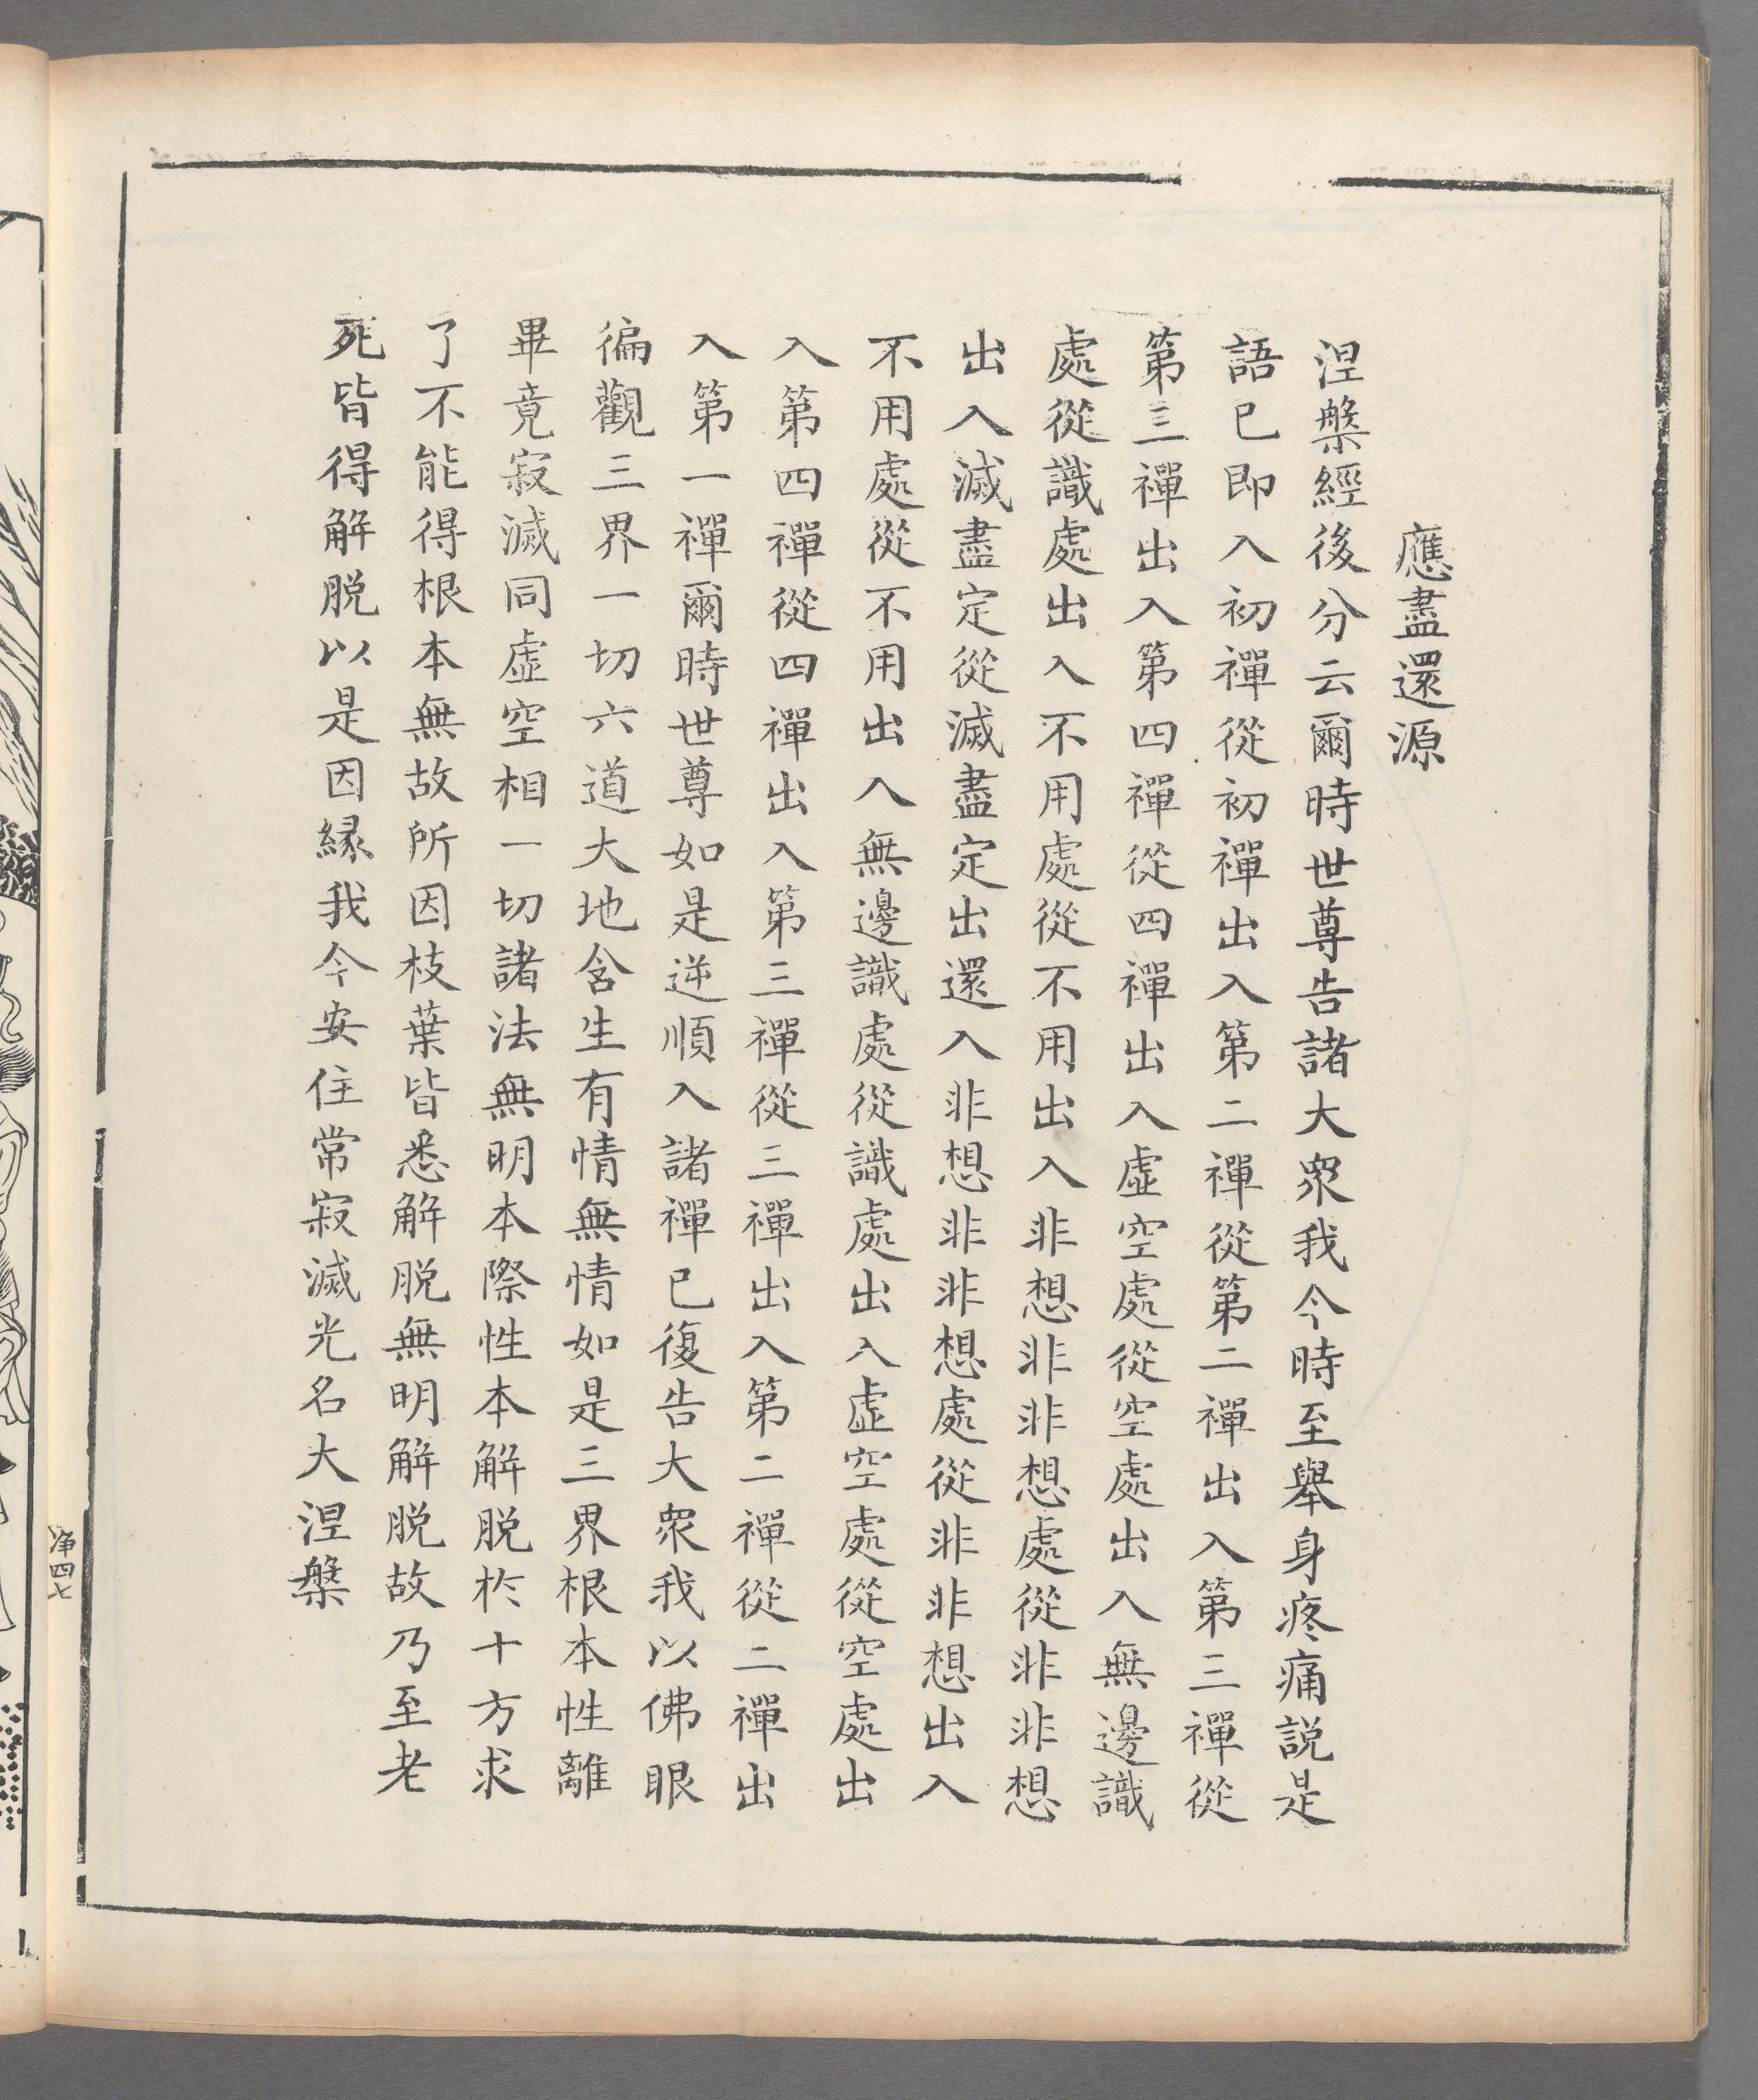 應盡還源
涅槃經後分云爾時世尊告諸大眾我今時至舉身疼痛説是
語已即入初禪從初禪出入第二禪從第二禪出入第三禪從
第三禪出入第四禪從四禪出入虛空處從空處出入無邊識
處從識處出入不用處從不用出入非想非非想處從非非想
出入滅盡定從滅盡定出還入非想非非想處從非非想出入
不用處從不用出入無邊識處從識處出入虛空處從空處出
入第四禪從四禪出入第三禪從三禪出入第二禪從二禪出
入第一禪爾時世尊如是逆順入諸禪已復告大眾我以佛眼
徧觀三界一切六道大地含生有情無情如是三界根本性離
畢竟寂滅同虛空相一切諸法無明本際性本解脱於十方求
了不能得根本無故所因枝葉皆悉解脱無明解脱故乃至老
死皆得解脱以是因縁我今安住常寂滅光名大涅槃
净四七